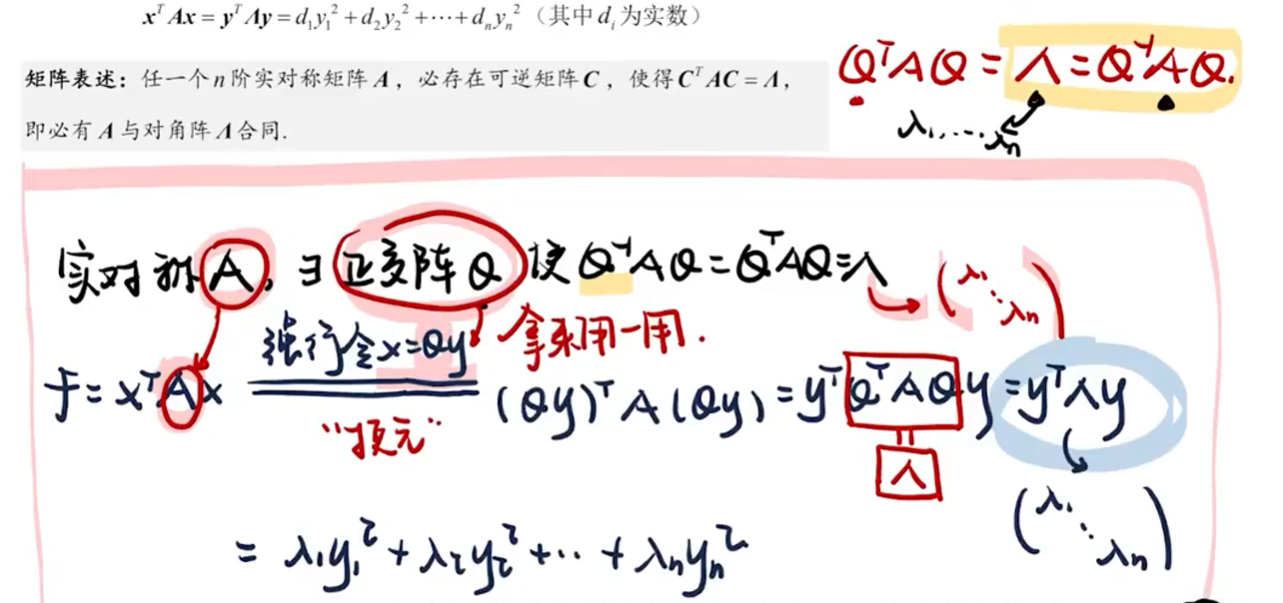 xᵀAx = yᵀΛy = d₁y₁² + d₂y₂² + ⋯ + dₙyₙ²（其中dᵢ为实数）
矩阵表述：任一个n阶实对称矩阵A，必存在可逆矩阵C，使得CᵀAC = Λ，
即必有A与对角阵Λ合同.
QᵀAQ = Λ = Q⁻¹AQ.
λ₁, ⋯ λₙ
实对称A, ∃正交阵Q使Q⁻¹AQ = QᵀAQ = Λ
(λ₁ ⋱ λₙ)
强行令x=Qy 拿来用一用.
f = xᵀAx (Qy)ᵀA(Qy) = yᵀQᵀAQy = yᵀΛy
"换元"
Λ
(λ₁ ⋱ λₙ)
= λ₁y₁² + λ₂y₂² + ⋯ + λₙyₙ²